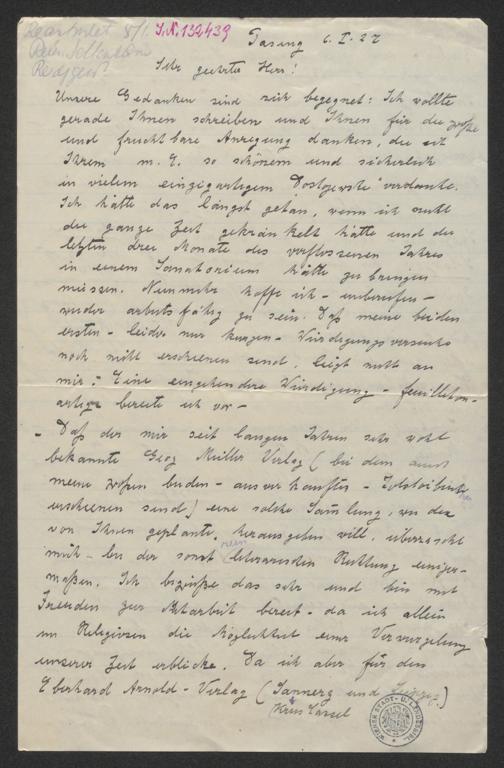 Beantwortet 8/1. I.N. 132439
Pasing 6. I. 27
Sehr geehrter Herr!
Unsere Gedanken sind sich begegnet: Ich wollte
gerade Ihnen schreiben und Ihnen für die große
und fruchtbare Anregung danken, die ich
Ihrem m. E. so schönem und sicherlich
in vielem einzigartigem "Dostojewski" verdanke.
Ich hätte das längst getan, wenn ich nicht
die ganze Zeit gekränkelt hätte und die
letzten drei Monate des verflossenen Jahres
in einem Sanatorium hätte zu bringen
müssen. Nunmehr hoffe ich - unberufen -
wieder arbeitsfähig zu sein. Daß meine beiden
ersten - leider nur kurzen - Würdigungsversuche
noch nicht erschienen sind, liegt nicht an
mir. Eine eingehendere Würdigung - feuilleton-
artige bereite ich vor -
- Daß der mir seit langen Jahren sehr wohl
bekannte Georg Müller Verlag (bei dem auch
meine großen beiden - ausverkauften - Tolstoibücher
erschienen sind) eine solche Samlung, wie die
von Ihnen geplante, herausgeben will, überrascht
mich - bei der sonst rein literarischen Richtung einiger-
maßen. Ich begrüße das sehr und bin mit
Freuden zur Mitarbeit bereit - da ich allein
im Religiösen die Möglichkeit einer Verwurzelung
unserer Zeit erblicke. Da ich aber für den
Eberhard Arnold-Verlag (Sannerz und Leipzig)
Kreis Cassel
WIENER STADT- U.